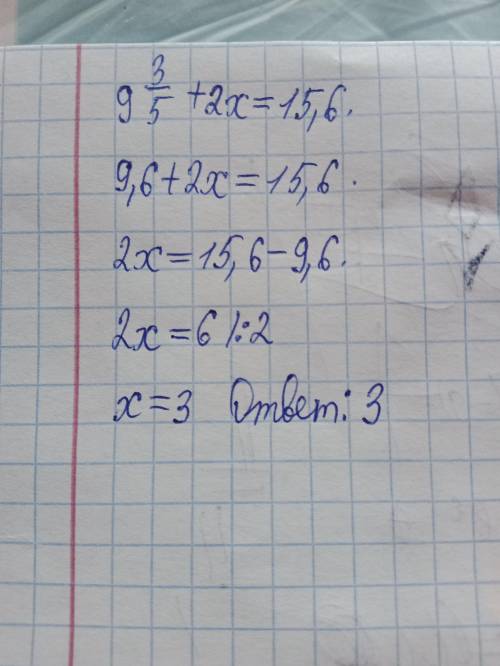 9 3/5 + 2x = 15,6.
9,6 + 2x = 15,6.
2x = 15,6 - 9,6.
2x = 6 |:2
x = 3 Ответ: 3